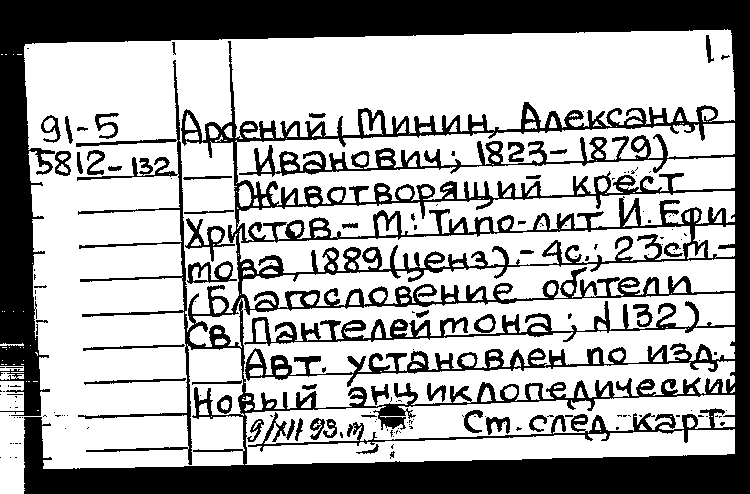 1.
91-5 Арсений (Минин, Александр
5812-132 Иванович; 1823-1879)
Животворящий крест
Христов.- М.: Типо-лит И. Ефи-
мова, 1889 (ценз).- 4с.; 23см.-
(Благословение обители
Св. Пантелеймона; №132).
Авт. установлен по изд.:
Новый энциклопедический
9/XII 93. т. Ст. след. карт.